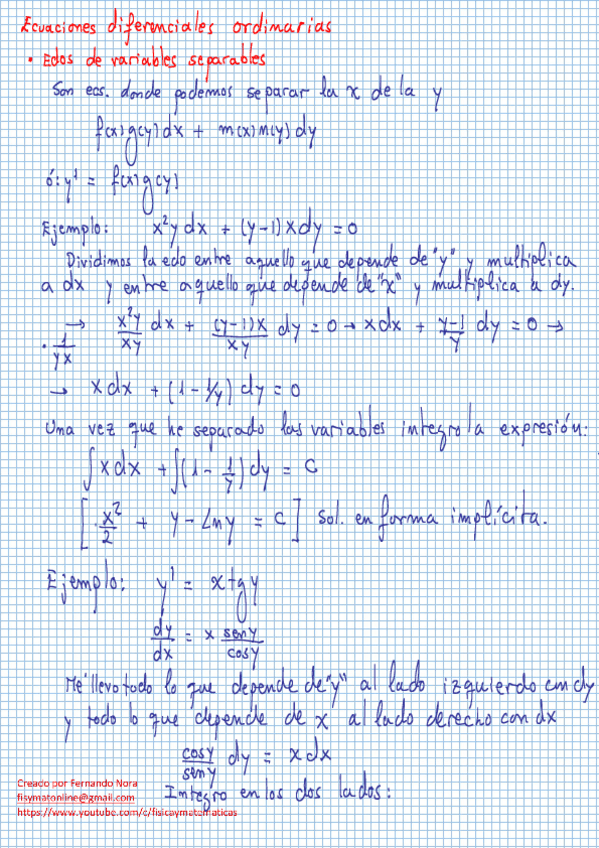 Ecuaciones diferenciales ordinarias
• Edos de variables separables
Son ecs. donde podemos separar la x de la y
f(x)g(y)dx + m(x)n(y)dy
ó: y' = f(x)g(y)
Ejemplo: x²y dx + (y-1)xdy = 0
Dividimos la edo entre aquello que depende de "y" y multiplica
a dx y entre aquello que depende de "x" y multiplica a dy.
· 1/yx → x²y/xy dx + (y-1)x/xy dy = 0 → xdx + y-1/y dy = 0 →
→ xdx + (1 - 1/y) dy = 0
Una vez que he separado las variables integro la expresión:
∫xdx + ∫(1 - 1/y)dy = C
[x²/2 + y - Lny = C] Sol. en forma implícita.
Ejemplo: y' = xtgy
dy/dx = x seny/cosy
Me llevo todo lo que depende de "y" al lado izquierdo con dy
y todo lo que depende de x al lado derecho con dx
cosy/seny dy = xdx
Integro en los dos lados:
Creado por Fernando Nora
fisymatonline@gmail.com
https://www.youtube.com/c/fisicaymatematicas